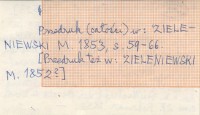 Przedruk (całości) w: ZIELE-
NIEWSKI M. 1853, s. 59-66.
[Przedruk też w: ZIELENIEWSKI
M. 1852?]